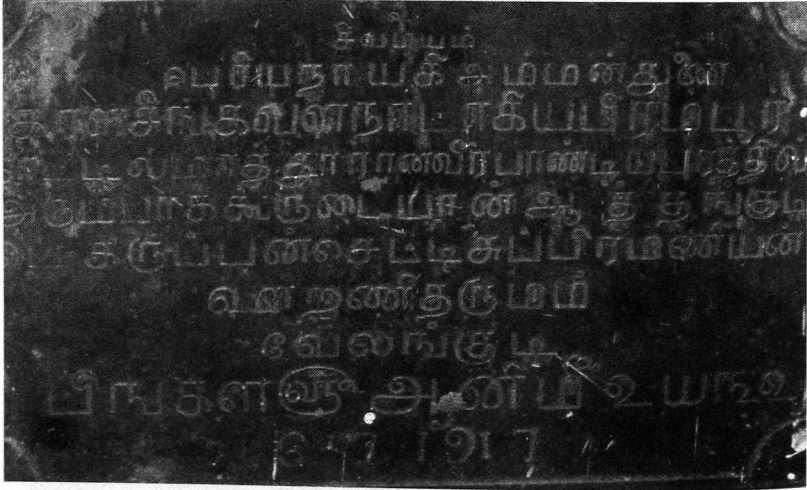 சிவமயம்
பெரியநாயகி அம்மன்துணை
களசிங்கவளநாடாகியபிரம்பூர்
மாத்தூரானவீரபாண்டியபுரத்தில்
அரும்பாக்கூருடையான் ஆத்தங்குடி
கருப்பன்செட்டி சுப்பிரமணியன்
ஊறணிதருமம்
வேலங்குடி
பிங்களளு ஆனிமீ உயநஉ
1917